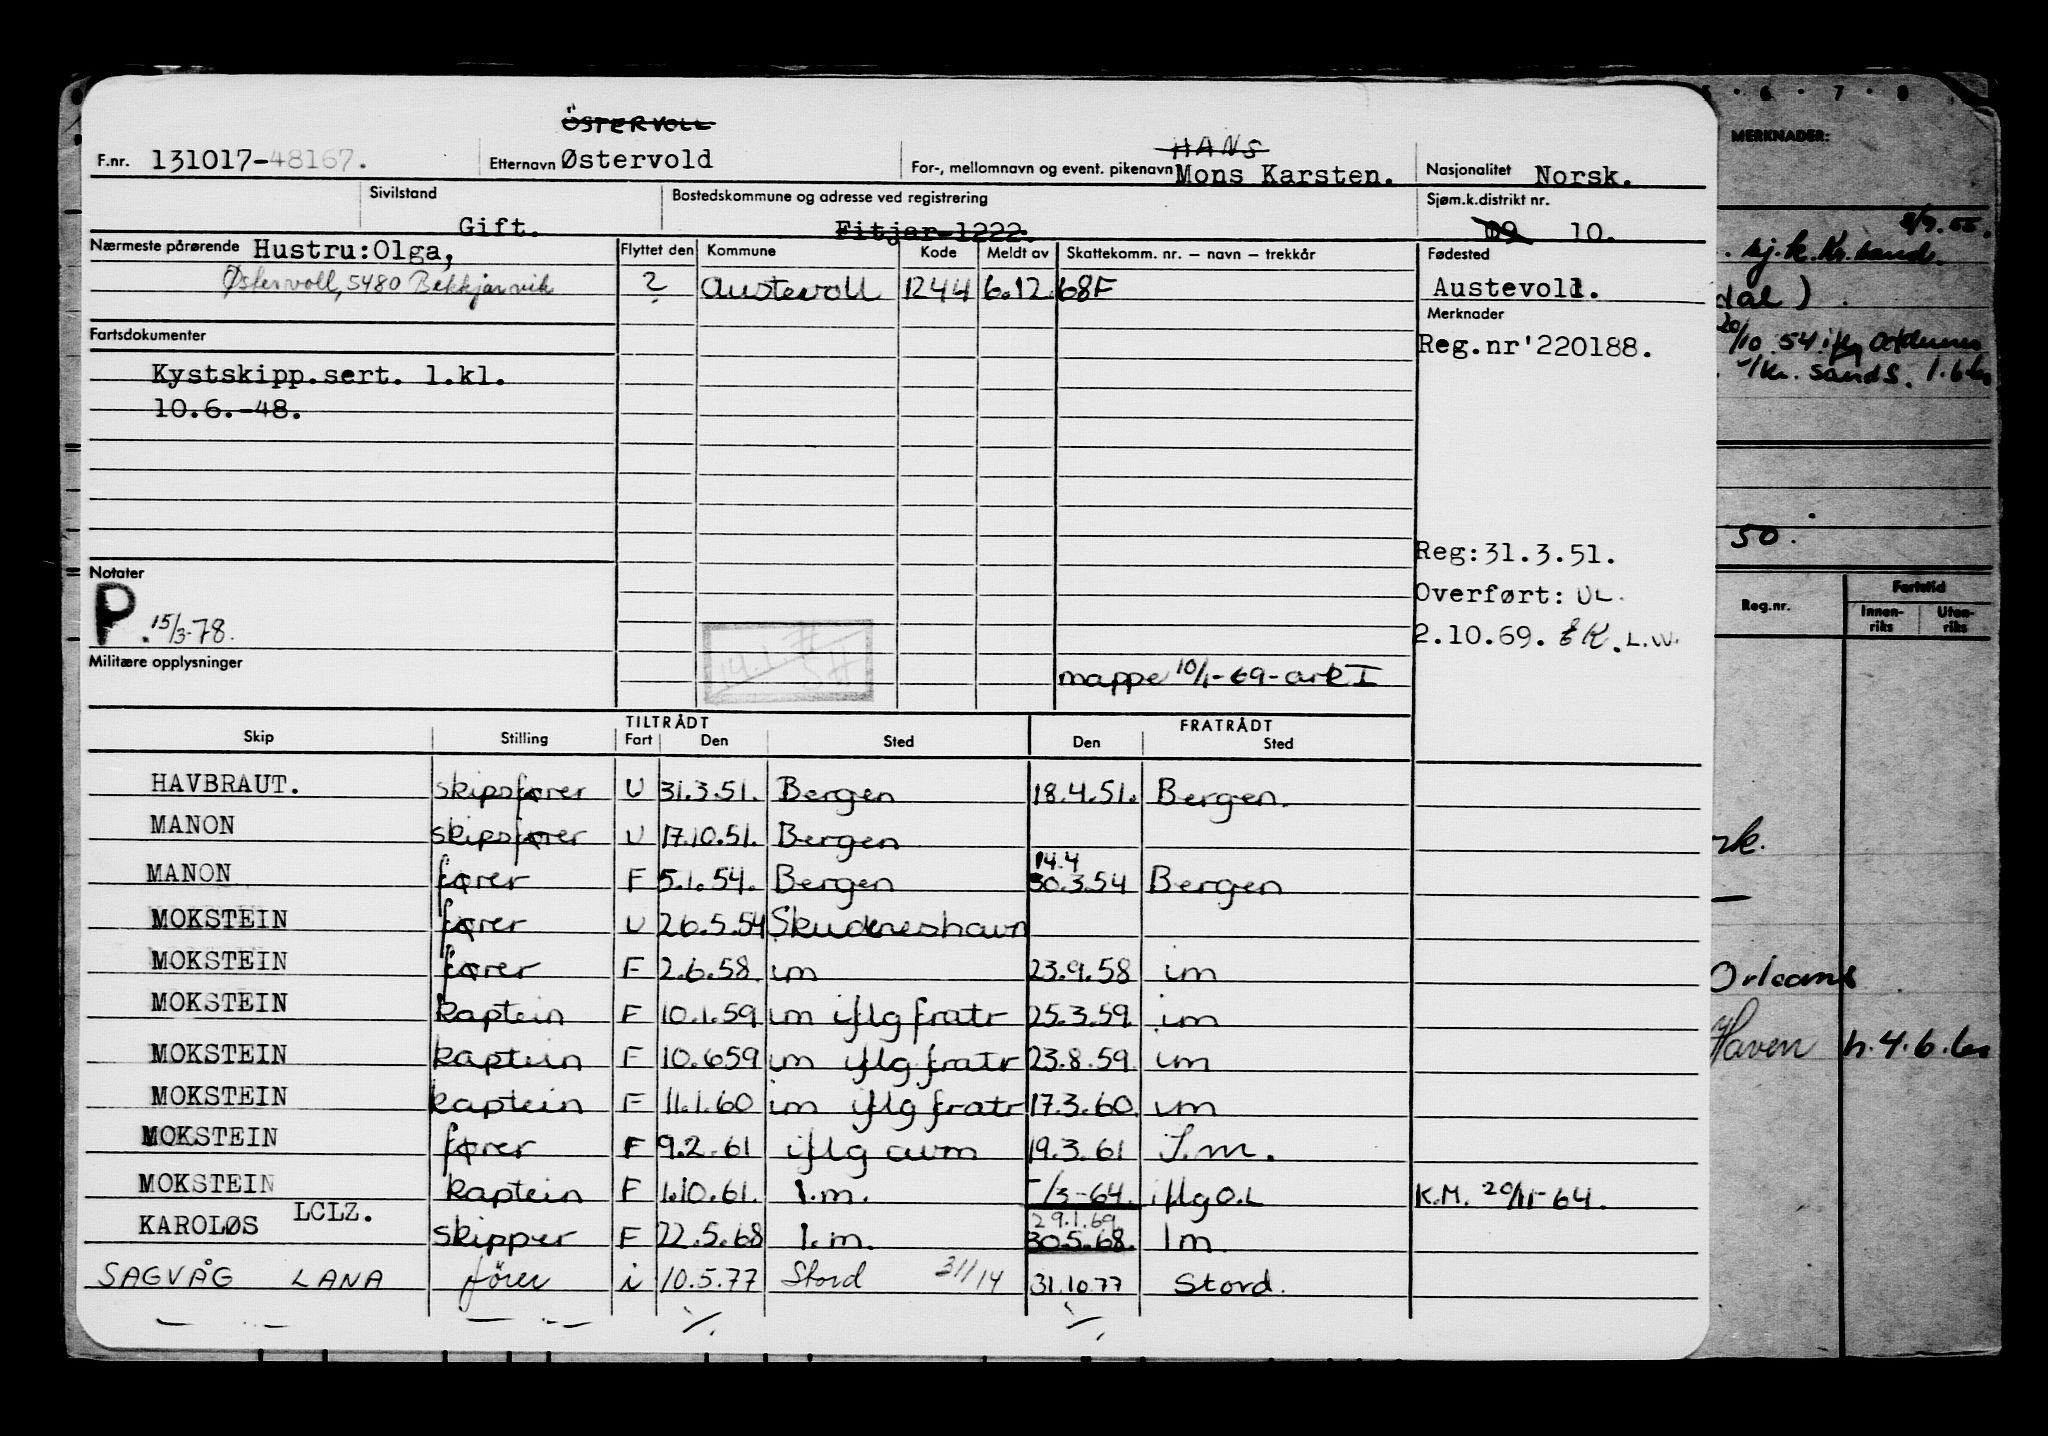 ÖSTERVOLL
F.nr. 131017-48167. Etternavn Østervold For-, mellomnavn og event. pikenavn HANS Mons Karsten. Nasjonalitet Norsk.
Sivilstand Gift. Bostedskommune og adresse ved registrering Fitjar-1222. Sjøm.k.distrikt nr. 09 10.
Nærmeste pårørende Hustru:Olga, Flyttet den Kommune Kode Meldt av Skattekomm. nr. – navn – trekkår Fødested
Østervoll, 5480 Bekkjarvik ? Austevoll 1244 6.12.68F Austevoll.
Fartsdokumenter Merknader
Kystskipp.sert. 1.kl. Reg.nr'220188.
10.6.-48.
Reg:31.3.51.
Notater Overført: UL.
P. 15/3-78. 2.10.69. EK. L.W.
Militære opplysninger mappe 10/1-69-ark I
TILTRÅDT FRATRÅDT
Skip Stilling Fart Den Sted Den Sted
HAVBRAUT. skipsfører U 31.3.51. Bergen 18.4.51. Bergen.
MANON skipsfører U 17.10.51. Bergen
14.4
MANON fører F 5.1.54. Bergen 30.3.54 Bergen
MOKSTEIN fører U 26.5.54 Skudeneshavn
MOKSTEIN fører F 2.6.58 im 23.9.58 im
MOKSTEIN kaptein F 10.1.59 im iflg fratr 25.3.59. im
MOKSTEIN kaptein F 10.659 im iflg fratr 23.8.59. im
MOKSTEIN kaptein F 11.1.60 im iflg fratr 17.3.60. im
MOKSTEIN fører F 9.2.61 iflg avm 19.3.61 I.m.
MOKSTEIN kaptein F 1.10.61. I.m. -/3-64. iflg O.L K.M. 20/11-64.
29.1.69.
KAROLØS LCLZ. skipper F 22.5.68 I.m. 30.5.68. Im
SAGVÅG LANA fører i 10.5.77 Stord 311/14 31.10.77 Stord.
5 · 6 · 7 · 8
MERKNADER:
8/9.55.
. sj.k. Kr.sand.
dal)
20/10 54 iflg
Kr. sand S.
50.
Reg.nr. Fartstid
Innen-riks Uten-riks
rk.
—
Orleans
Haven